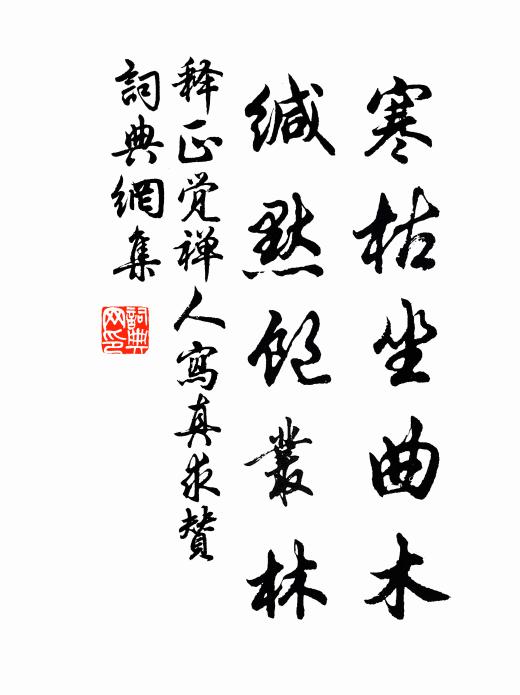 寒枯坐曲木
缄默饱叢林
释正觉禅人寫真求贊
詞典網集
詞典网印